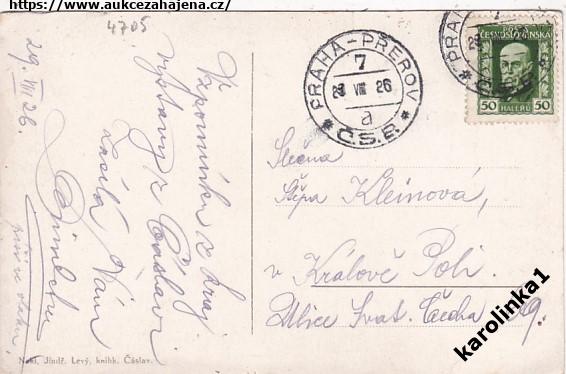 https://www.aukcezahajena.cz/
4705
29. VIII 26.
Vzpomínku z kraj.
výstavy z Čáslavi
zasílá Vám
PRAHA-PŘEROV
7
29 VIII 26
a
* Č.S.P. *
PRAHA
POŠTA
ČESKOSLOVENSKÁ
50 HALÉŘŮ 50
Slečna
Štěpa Kleinová,
v Králově Poli.
Ulice Svat. Čecha 9.
Nakl. Jindř. Levý, knihk. Čáslav.
karolinka1